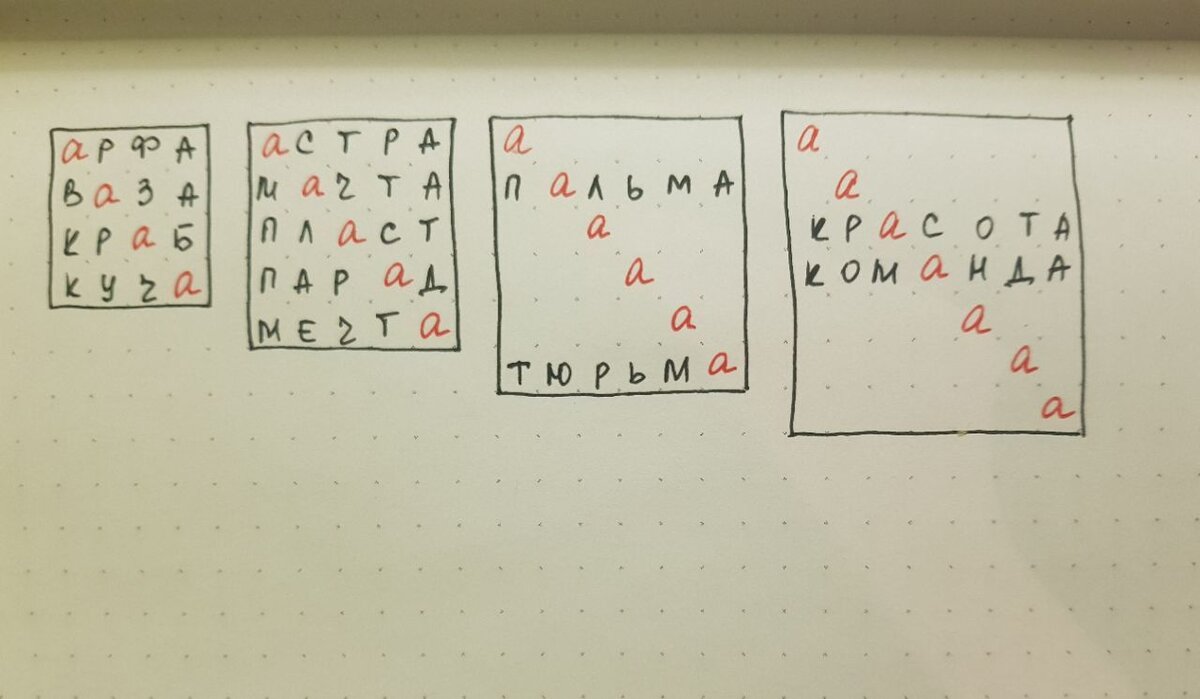 аРФА
ВаЗА
КРаБ
КУЧа
аСТРА
МаЧТА
ПЛаСТ
ПАРаД
МЕЧТа
а
ПаЛЬМА
а
а
а
ТЮРЬМа
а
а
КРаСОТА
КОМаНДА
а
а
а